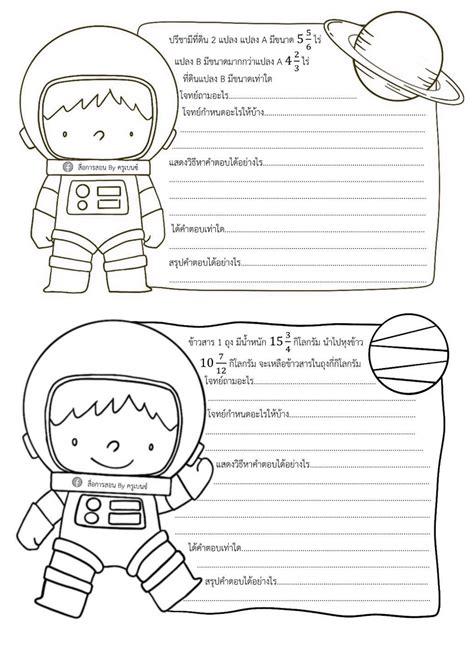 ปรีชามีที่ดิน 2 แปลง แปลง A มีขนาด 5 5/6 ไร่
แปลง B มีขนาดมากกว่าแปลง A 4 2/3 ไร่
ที่ดินแปลง B มีขนาดเท่าใด
โจทย์ถามอะไร
โจทย์กำหนดอะไรให้บ้าง
แสดงวิธีหาคำตอบได้อย่างไร
สื่อการสอน By ครูเบนซ์
ได้คำตอบเท่าใด
สรุปคำตอบได้อย่างไร
ข้าวสาร 1 ถุง มีน้ำหนัก 15 3/4 กิโลกรัม นำไปหุงข้าว
10 7/12 กิโลกรัม จะเหลือข้าวสารในถุงกี่กิโลกรัม
โจทย์ถามอะไร
โจทย์กำหนดอะไรให้บ้าง
แสดงวิธีหาคำตอบได้อย่างไร
สื่อการสอน By ครูเบนซ์
ได้คำตอบเท่าใด
สรุปคำตอบได้อย่างไร